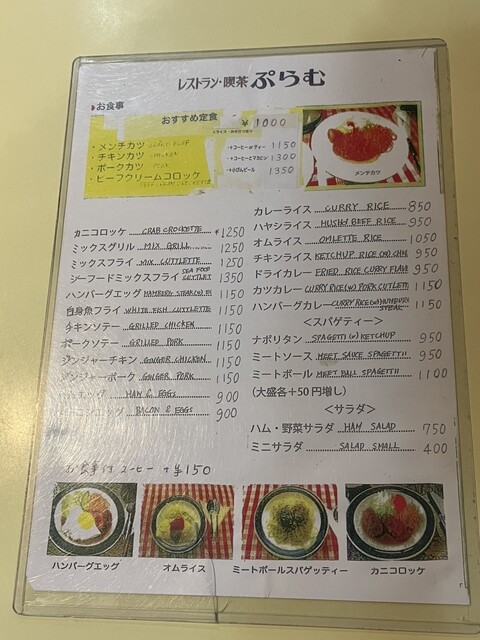 レストラン・喫茶 ぷらむ
お食事
おすすめ定食
¥1000
・メンチカツ
・チキンカツ CHICKEN
・ポークカツ PORK
・ビーフクリームコロッケ
+コーヒーorティー 1150
1300
1350
メンチカツ
カニコロッケ CRAB CROCKETTE ¥1250
ミックスグリル MIX GRILL 1250
ミックスフライ MIX CUTTLETTE 1250
シーフードミックスフライ SEA FOOD CUTTLET 1350
ハンバーグエッグ HAMBURG STEAK 1150
白身魚フライ WHITE FISH CUTTLETTE 1150
チキンソテー GRILLED CHICKEN 1150
ポークソテー GRILLED PORK 1150
ジンジャーチキン GINGER CHICKEN 1150
ジンジャーポーク GINGER PORK 1150
HAM & EGGS 900
BACON & EGGS 900
カレーライス CURRY RICE 850
ハヤシライス HUSH BEEF RICE 950
オムライス OMLETTE RICE 1050
チキンライス KETCHUP RICE 950
ドライカレー FRIED RICE CURRY FLAVA 950
カツカレー CURRY RICE (w) PORK CUTLET 1150
ハンバーグカレー CURRY RICE (w) HUMBURG STEAK 1150
<スパゲティー>
ナポリタン SPAGETTI (w) KETCHUP 950
ミートソース MEET SAUCE SPAGETTI 950
ミートボール MEET BALL SPAGETTI 1100
(大盛各+50円増し)
<サラダ>
ハム・野菜サラダ HAM SALAD 750
ミニサラダ SALAD SMALL 400
お食事付コーヒー +¥150
ハンバーグエッグ
オムライス
ミートボールスパゲッティー
カニコロッケ